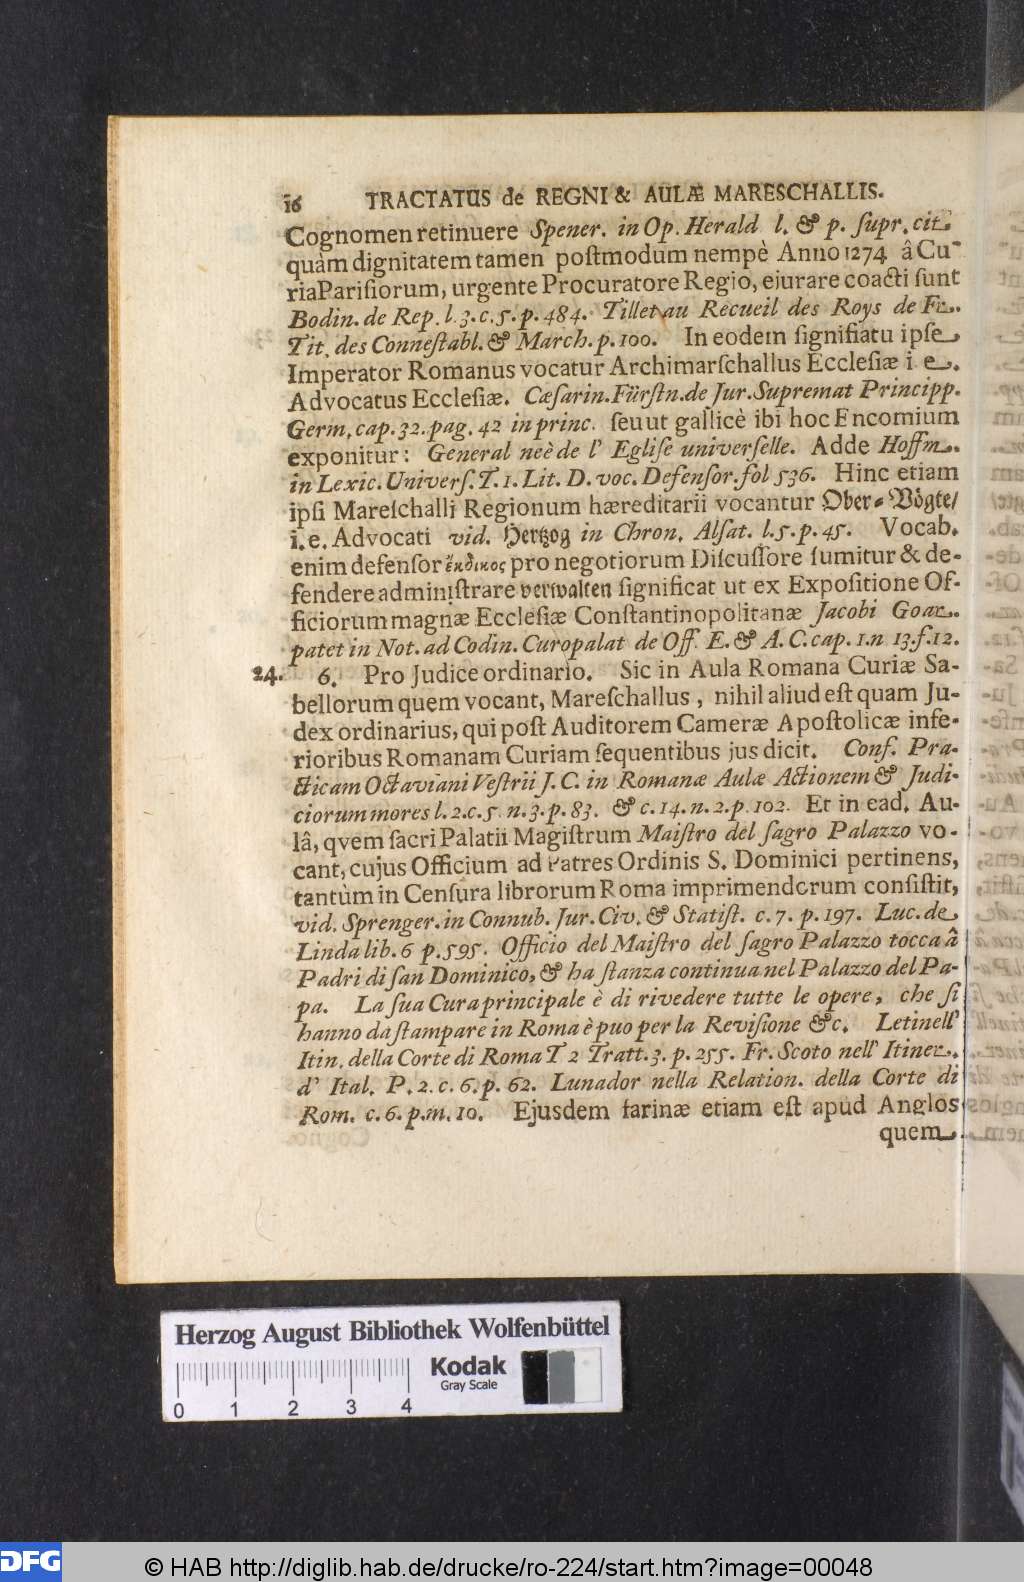 16 TRACTATUS de REGNI & AULÆ MARESCHALLIS.
Cognomen retinuere Spener. in Op. Herald l. & p. ſupr. cit.
quàm dignitatem tamen poſtmodum nempè Anno 1274 â Cu-
ria Pariſiorum, urgente Procuratore Regio, ejurare coacti ſunt
Bodin. de Rep. l. 3. c. 5. p. 484. Tillet au Recueil des Roys de Fr.
Tit. des Conneſtabl. & March. p. 100. In eodem ſignifiatu ipſe
Imperator Romanus vocatur Archimarſchallus Eccleſiæ i e.
Advocatus Eccleſiæ. Cæſarin. Fürſtn. de Jur. Supremat Principp.
Germ. cap. 32. pag. 42 in princ. ſeu ut gallicè ibi hoc Encomium
exponitur: General neè de l' Egliſe univerſelle. Adde Hoffm.
in Lexic. Univerſ. T. 1. Lit. D. voc. Defenſor. fol 536. Hinc etiam
ipſi Mareſchalli Regionum hæreditarii vocantur Ober-Vögte/
i. e. Advocati vid. Hertzog in Chron. Alſat. l. 5. p. 45. Vocab.
enim defenſor ἔκδικος pro negotiorum Diſcuſſore ſumitur & de-
fendere adminiſtrare verwalten ſignificat ut ex Expoſitione Of-
ficiorum magnæ Eccleſiæ Conſtantinopolitanæ Jacobi Goar.
patet in Not. ad Codin. Curopalat de Off. E. & A. C. cap. 1. n 13. f. 12.
24. 6. Pro Judice ordinario. Sic in Aula Romana Curiæ Sa-
bellorum quem vocant, Mareſchallus, nihil aliud eſt quam Ju-
dex ordinarius, qui poſt Auditorem Cameræ Apoſtolicæ infe-
rioribus Romanam Curiam ſequentibus jus dicit. Conf. Pra-
cticam Octaviani Veſtrii J. C. in Romanæ Aulæ Actionem & Judi-
ciorum mores l. 2. c. 5. n. 3. p. 83. & c. 14. n. 2. p. 102. Et in ead. Au-
lâ, qvem ſacri Palatii Magiſtrum Maiſtro del ſagro Palazzo vo-
cant, cujus Officium ad Patres Ordinis S. Dominici pertinens,
tantùm in Cenſura librorum Roma imprimendorum conſiſtit,
vid. Sprenger. in Connub. Jur. Civ. & Statiſt. c. 7. p. 197. Luc. de
Linda lib. 6 p. 595. Officio del Maiſtro del ſagro Palazzo tocca â
Padri di ſan Dominico, & ha ſtanza continua nel Palazzo del Pa-
pa. La ſua Cura principale è di rivedere tutte le opere, che ſi
hanno da ſtampare in Roma è puo per la Reviſione &c. Leti nell'
Itin. della Corte di Roma T 2 Tratt. 3. p. 255. Fr. Scoto nell' Itiner.
d' Ital. P. 2. c. 6. p. 62. Lunador nella Relation. della Corte di
Rom. c. 6. p. m. 10. Ejusdem farinæ etiam eſt apud Anglos
quem
Herzog August Bibliothek Wolfenbüttel
Kodak
Gray Scale
0 1 2 3 4
DFG
© HAB http://diglib.hab.de/drucke/ro-224/start.htm?image=00048